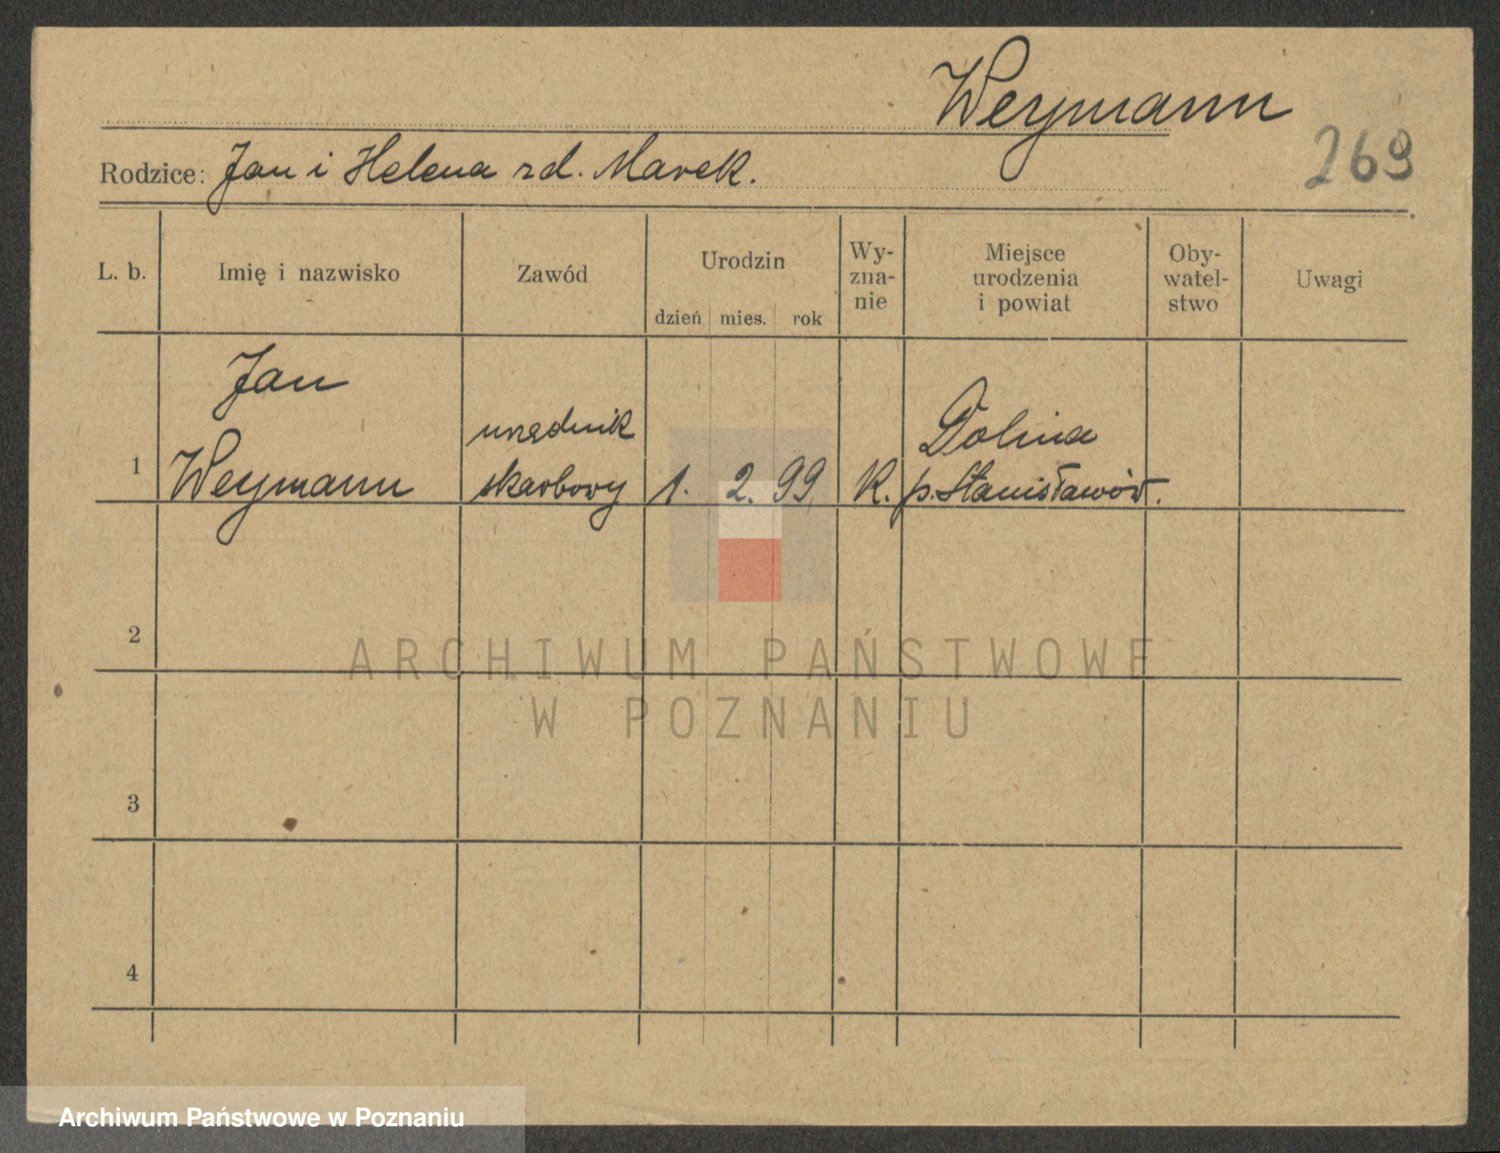 Weymann
269
Rodzice: Jan i Helena zd. Marek.
L. b. Imię i nazwisko Zawód Urodzin dzień mies. rok Wy-
zna-
nie Miejsce
urodzenia
i powiat Oby-
watel-
stwo Uwagi
Jan
urzędnik Dolina
1 Weymann skarbowy 1. 2. 99 K. p. Stanisławów.
2
ARCHIWUM PAŃSTWOWE
W POZNANIU
3
4
Archiwum Państwowe w Poznaniu